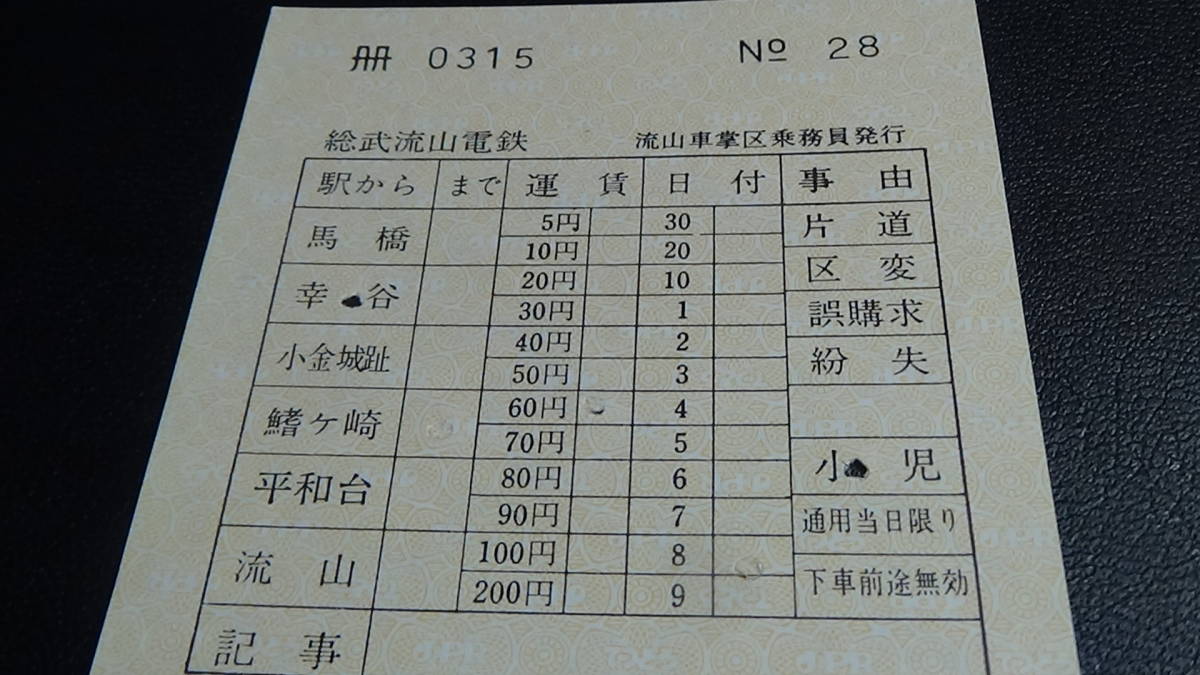 冊 0315 № 28
総武流山電鉄 流山車掌区乗務員発行
駅から まで 運賃 日付 事由
馬橋 5円 30 片道
10円 20
区変
幸谷 20円 10
30円 1 誤購求
小金城趾 40円 2
紛失
50円 3
鰭ヶ崎 60円 4
70円 5
小児
平和台 80円 6
90円 7 通用当日限り
流山 100円 8
下車前途無効
200円 9
記事